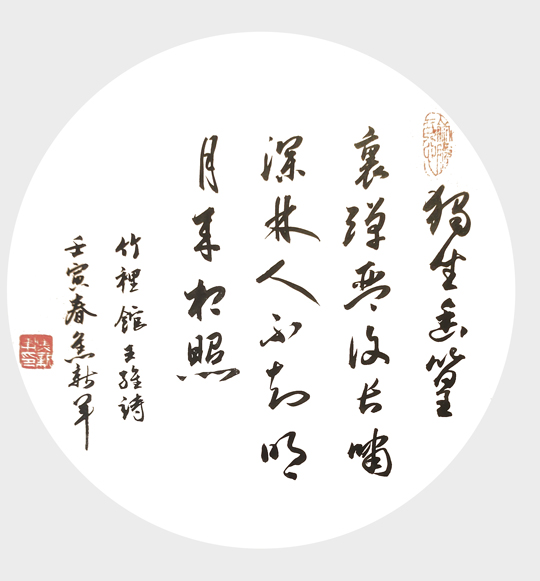 獨坐幽篁
裏彈琴復长嘯
深林人不知明
月来相照
竹裡館王維詩
壬寅春焦新